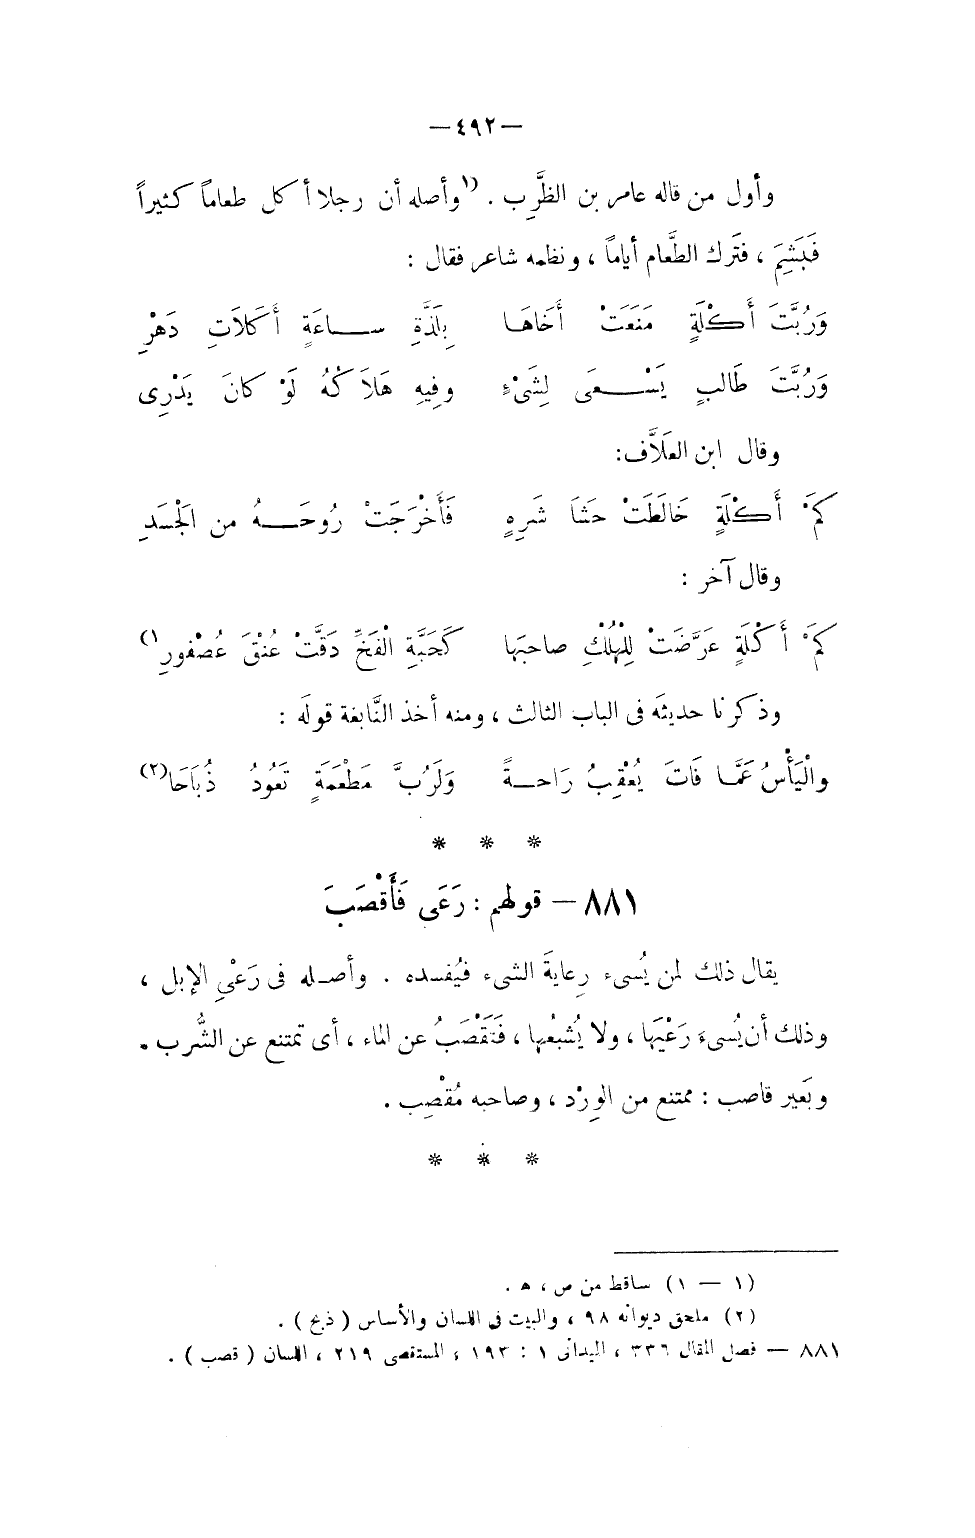 — ٤٩٢ —
وأول من قاله عامر بن الظَّرِب . (١وأصله أن رجلا أكل طعاماً كثيراً
فَبَشِمَ ، فتَرك الطَّعام أياماً ، ونظمه شاعر فقال :
وَرُبَّتَ أَكْلَةٍ مَنَعَتْ أَخَاهَا بِلَذَّةِ ســـاعَةٍ أَكَلاَتِ دَهْرِ
وَرُبَّتَ طَالبٍ يَسْـــعَى لِشَىْءٍ وفِيهِ هَلاَكُهُ لَوْ كانَ يَدْرِى
وقال ابن العَلاَّف:
كَمْ أَكْلَةٍ خَالَطَتْ حَشَا شَرِهٍ فَأَخْرَجَتْ رُوحَـــهُ من الَجْسَدِ
وقال آخر :
كَمْ أَكْلَةٍ عَرَّضَتْ لِلْهُلْكِ صاحبَها كَحَبَّةِ الْفَخِّ دَقَّتْ عُنْقَ عُصْفورِ١)
وذكرنا حديثَه فى الباب الثالث ، ومنه أخذ النَّابغة قولَه :
والْيَأْسُ عَمَّا فَاتَ يُعْقِبُ رَاحـةً وَلَرُبَّ مَطْعَمَةٍ تَعُودُ ذُبَاحَا(٢)
* * *
٨٨١ — قولهم : رَعَى فَأَقْصَبَ
يقال ذلك لمن يُسىء رِعايةَ الشىء فيُفسده . وأصـله فى رَعْىِ الإبل ،
وذلك أن يُسىءَ رَعْيَها ، ولا يُشبعُها ، فتَقْصَبُ عن الماء ، أى تمتنع عن الشُّرب .
وبَعير قاصب : ممتنع من الوِرْد ، وصاحبه مُقْصِب .
* * *
(١ — ١) ساقط من ص ، ھ .
(٢) ملحق ديوانه ٩٨ ، والبيت فى اللسان والأساس ( ذبح ) .
٨٨١ — فصل المقال ٣٣٦ ، الميدانى ١ : ١٩٣ ، المستقصى ٢١٩ ، اللسان ( قصب ) .